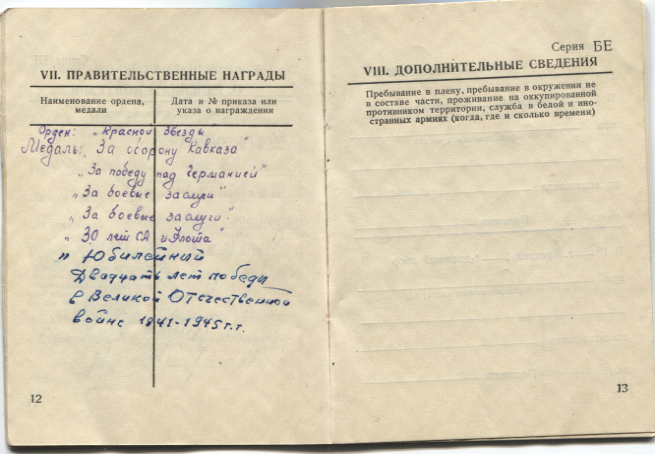 VII. ПРАВИТЕЛЬСТВЕННЫЕ НАГРАДЫ
Наименование ордена, медали
Дата и № приказа или указа о награждении
Орден: „Красной Звезды
Медаль: За оборону Кавказа"
„За победу над Германией"
„За боевые заслуги"
„За боевые заслуги"
„30 лет СА и Флота"
„ Юбилейный
Двадцать лет победы
в Великой Отечественной
войне 1941-1945 г.г.
12
Серия БЕ
VIII. ДОПОЛНИТЕЛЬНЫЕ СВЕДЕНИЯ
Пребывание в плену, пребывание в окружении не
в составе части, проживание на оккупированной
противником территории, служба в белой и ино-
странных армиях (когда, где и сколько времени)
13